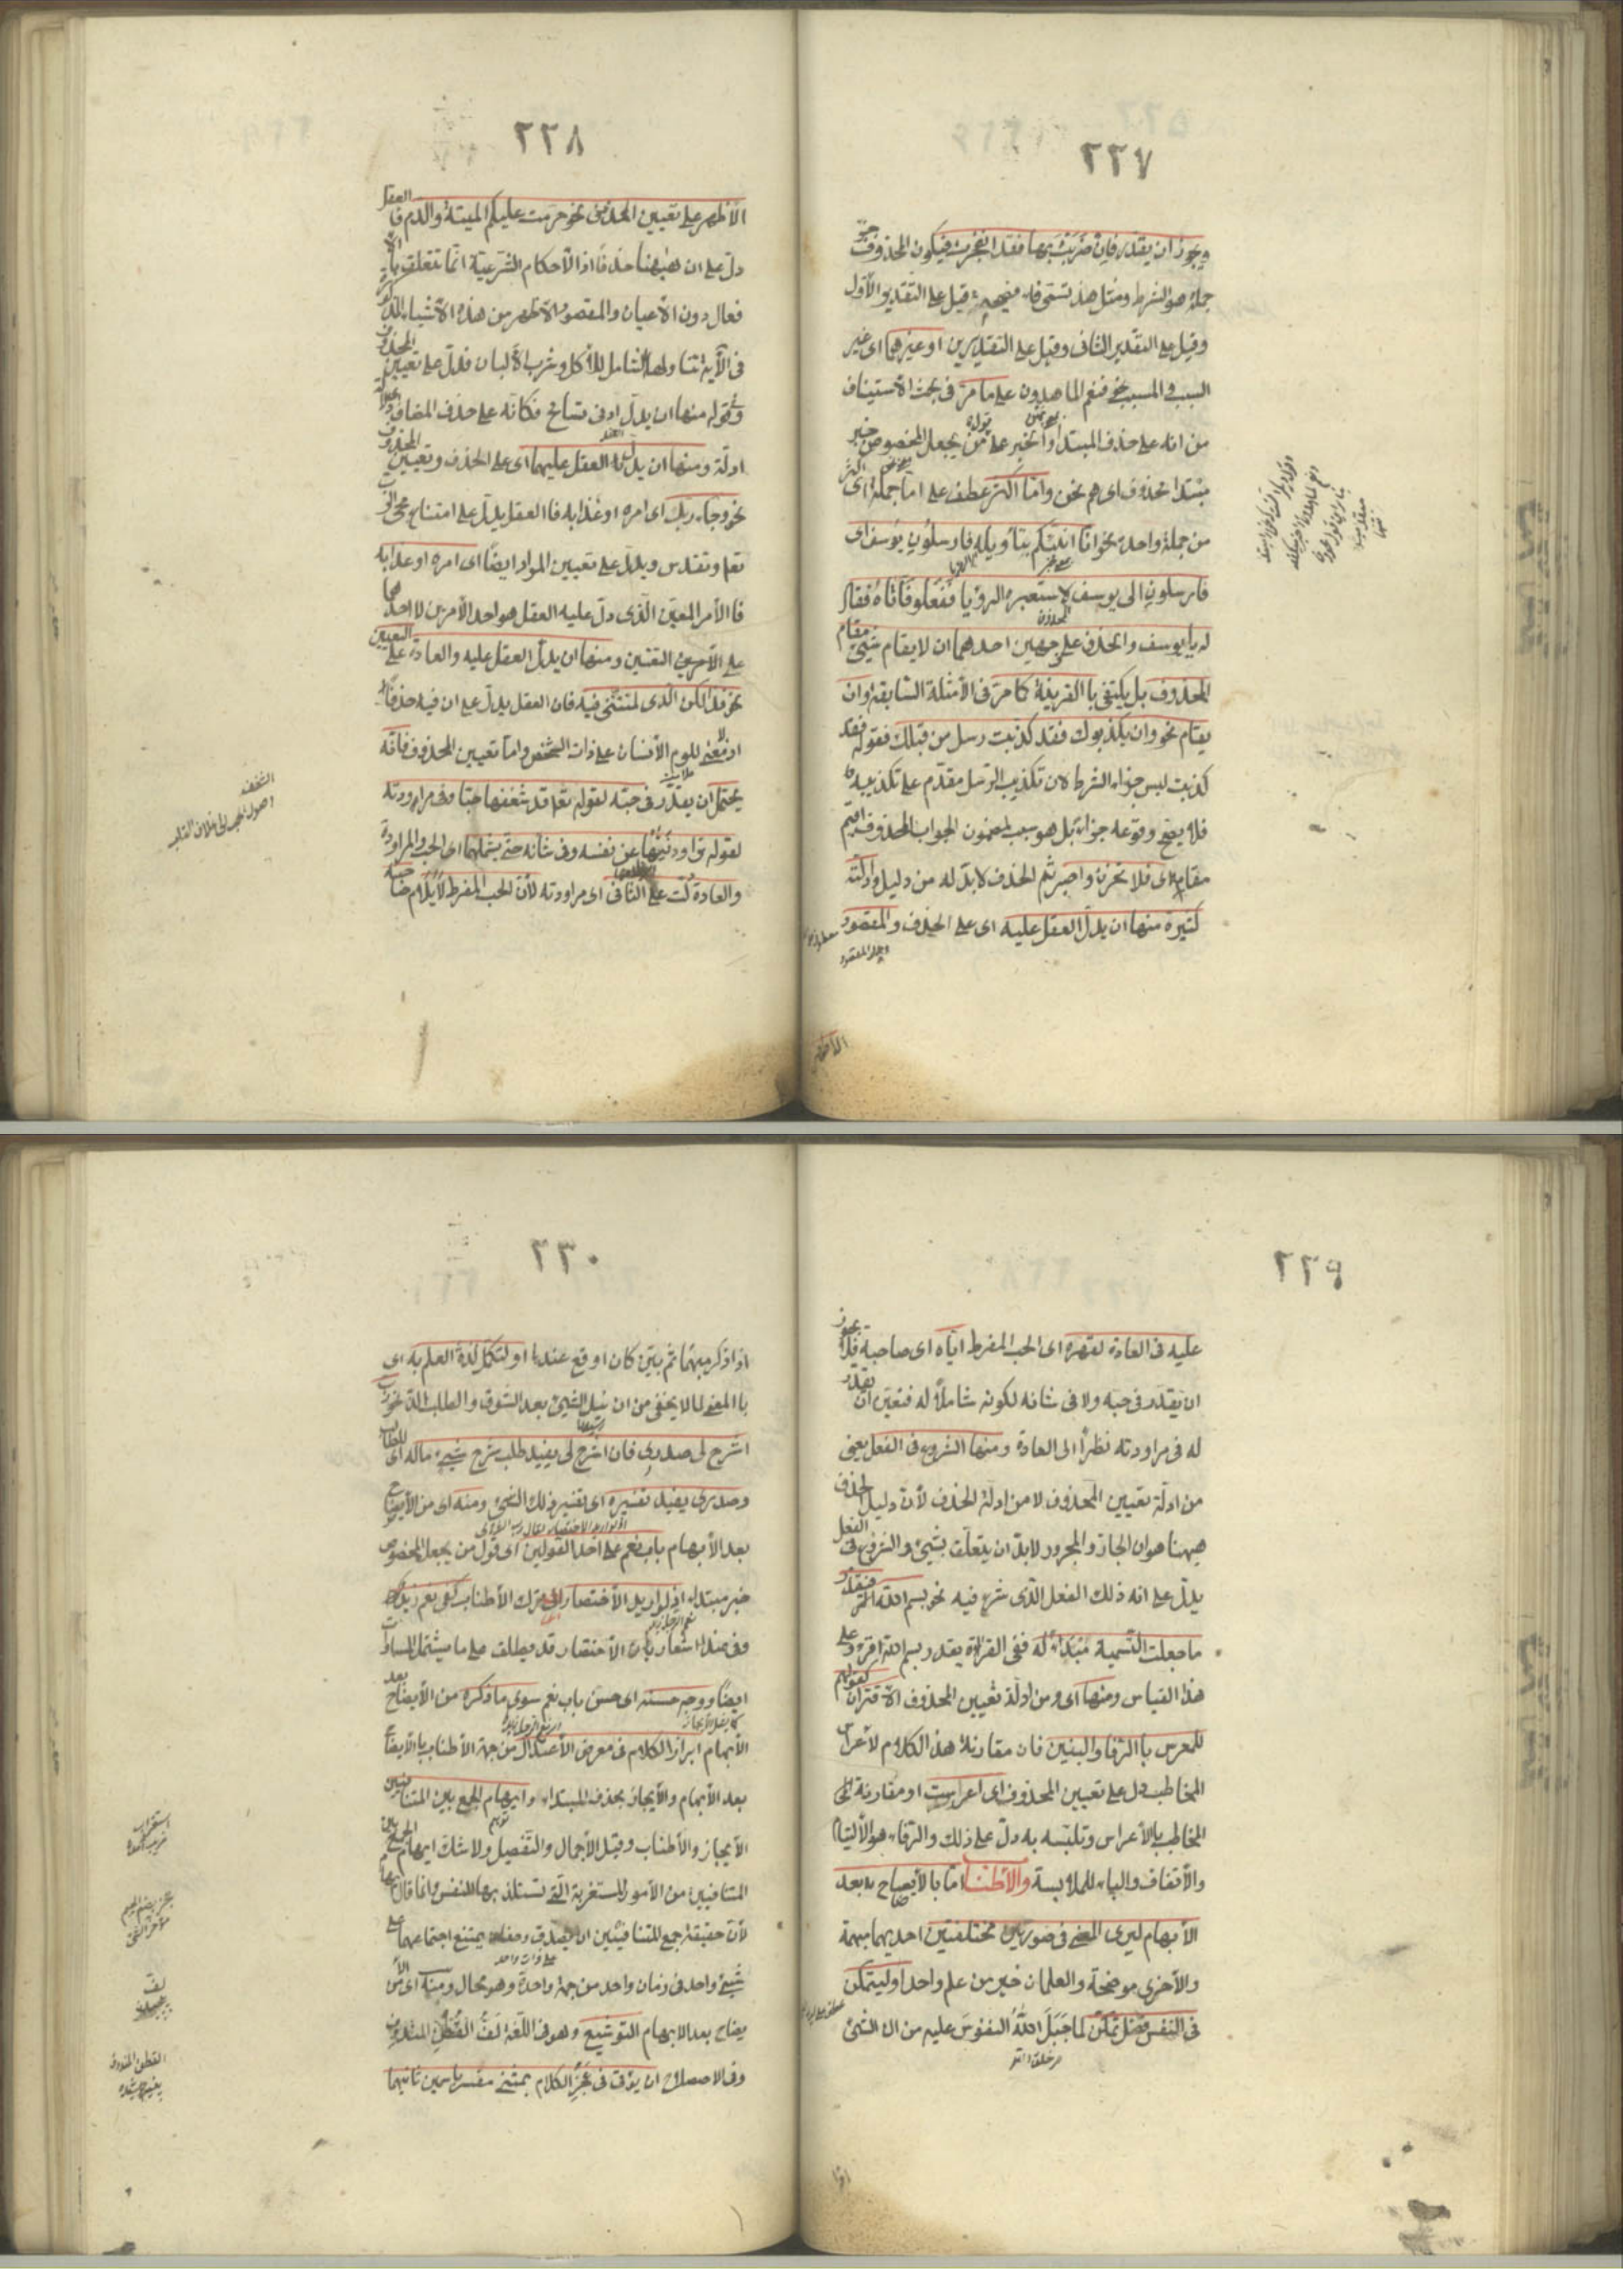 ٢٢٧
ويجوز ان يقدر فان ضربت بها فقد انفجرت فيكون المحذوف جزء
جملة هو الشرط ومثل هذه تسمى فاء فصيحة قيل على التقدير الأول
وقيل على التقدير الثاني وقيل على التقديرين او غيرهما اى غير
السبب والمسبب نحو فنعم الماهدون على ما مرّ فى بحث الاستيناف
من انه على حذف المبتدأ والخبر على من يجعل المخصوص خبر
مبتدا محذوف اى هم نحن وامّا اكثر عطف على امّا جملة اى اكثر
من جملة واحدة نحو انا انبئكم بتأويله فارسلون يوسف اى
فارسلون الى يوسف لاستعبره الرؤيا ففعلوا فاتاه فقال
له يا يوسف والحذف على وجهين احدهما ان لا يقام شيئ مقام
المحذوف بل يكتفى باالقرينة كما مرّ فى الأمثلة السّابقة وان
يقام نحو وان يكذبوك فقد كذبت رسل من قبلك فقوله فقد
كذبت ليس جزاء الشرط لان تكذيب الرّسل مقدّم على تكذيبه
فلا يصح وقوعه جزاء بل هو سبب لمضمون الجواب المحذوف اقيم
مقامه اى فلا تحزن واصبر ثم الحذف لا بدّ له من دليل وادلّته
كثيرة منها ان يدلّ العقل عليه اى على الحذف والمقصود
٢٢٨
الأظهر على تعيين المحذوف نحو حرمت عليكم الميتة والدم فا العقل
دلّ على ان ههنا حذفًا اذ الأحكام الشّرعيّة انّما تتعلق بالأ
فعال دون الأعيان والمقصود الاظهر من هذه الأشياء المذكورة
فى الأية تناولها الشامل للأكل وشرب الألبان فدلّ على تعيين المحذوف
وفى قوله منها ان يدلّ ادنى تسامح فكأنّه على حذف المضاف
ادلّة ومنها ان يدلّ العقل عليهما اى على الحذف وتعيين المحذوف
نحو وجاء ربّك اى امره او عذابه فاالعقل يدلّ على امتناع مجئ الرب
تعا وتقدس ويدلّ على تعيين المراد ايضًا اى امره او عذابه
فاالأمر المعيّن الّذى دلّ عليه العقل هو احد الأمرين لا احدهما
على التعيين ومنها ان يدلّ العقل عليه والعادة على التعيين
نحو فذلكن الّذى لمتننّى فيه فان العقل يدلّ على ان فيه حذفًا
اذ لا معنى للوم الأنسان على ذات الشّخص وامّا تعيين المحذوف فانّه
يحتمل ان يقدّر فى حبّه لقوله تعا قد شغفها حبّا وفى مراودته
لقوله تراود فتيها عن نفسه وفى شأنه حتى يشملهما اى الحب والمراودة
والعادة دلّت على الثانى اى مراودته لأنّ الحب المفرط لا يلام صاحبه
٢٢٩
عليه فى العادة لقهره اى الحب المفرط ايّاه اى صاحبه فلا يجوز
ان يقدّر فى حبه ولا فى شانه لكونه شاملاً له فتعيّن ان يقدّر
له فى مراودته نظرًا الى العادة ومنها الشروع فى الفعل يعنى
من ادلّة تعيين المحذوف لا من ادلّة الحذف لأنّ دليل الحذف
ههنا هو ان الجارّ والمجرور لا بدّ ان يتعلّق بشيئ والشروع فى الفعل
يدلّ على انه ذلك الفعل الّذى شرع فيه نحو بسم الله فيقدّر
ما جعلت التّسمية مبتدأ له ففى القرائة يقدر بسم الله اقرء وعلى
هذا القياس ومنها اى ومن ادلّة تعيين المحذوف الاقتران كقولهم
للمعرس باالرّفاء والبنين فان مقارنة هذا الكلام لأعراس
المخاطب دلّ على تعيين المحذوف اى اعرست او مقارنة
المخاطب باالأعراس وتلبّسه به دلّ على ذلك والرّفاء هو الألتيام
والأتفاق والباء للملابسة والأطناب امّا بالأيضاح بعد
الأبهام ليرى المعنى فى صورتين مختلفتين احديهما مبهمة
والأخرى موضحة والعلمان خير من علم واحد او ليتمكّن
فى النفس فضل تمكّن لما جبل الله النفوس عليه من ان الشئ
٢٣٠
اذا ذكر مبهمًا ثم بيّن كان اوقع عندها او لتكمل لذة العلم به اى
باالمعنى لما لا يخفى من ان نيل الشيئ بعد الشوق والطلب الذّ نحو ربّ
اشرح لى صدرى فان اشرح لى يفيد طلب شرح شيئ ماله اى للطالب
وصدرى يفيد تفسيره اى تفسير ذلك الشئ ومنه اى من الأيضاح
بعد الأبهام باب نعم على احد القولين اى قول من يجعل المخصوص
خبر مبتداء اذ لو اريد الأختصار اى ترك الأطناب كفى نعم زيد
وفى هذا اشعار بأن الأختصار قد يطلق على ما يشتمل المساواة
ايضًا ووجه حسنه اى حسن باب نعم سوى ما ذكره من الأيضاح بعد
الأبهام ابراز الكلام فى معرض الأعتدال من جهة الأطناب باالأيضاح
بعد الأبهام والأيجاز بحذف المبتداء وايهام الجمع بين المتنافيين
الأيجاز والأطناب وقيل الأجمال والتّفصيل ولا شكّ ايهام الجمع بين
المتنافيين من الأمور المستغربة الّتى تستلذ بها النفس وانما قال ايهام
لأنّ حقيقة جمع المتنافيين ان يصدق يمتنع اجتماعهما على
شيئ واحد فى زمان واحد من جهة واحدة وهو محال ومنه اى من الأ
يضاح بعد الابهام التوشيع وهو فى اللّغة لفّ القطن المندوف
وفى الاصطلاح ان يؤتى فى عجز الكلام بمثنى مفسر باسمين ثانيهما